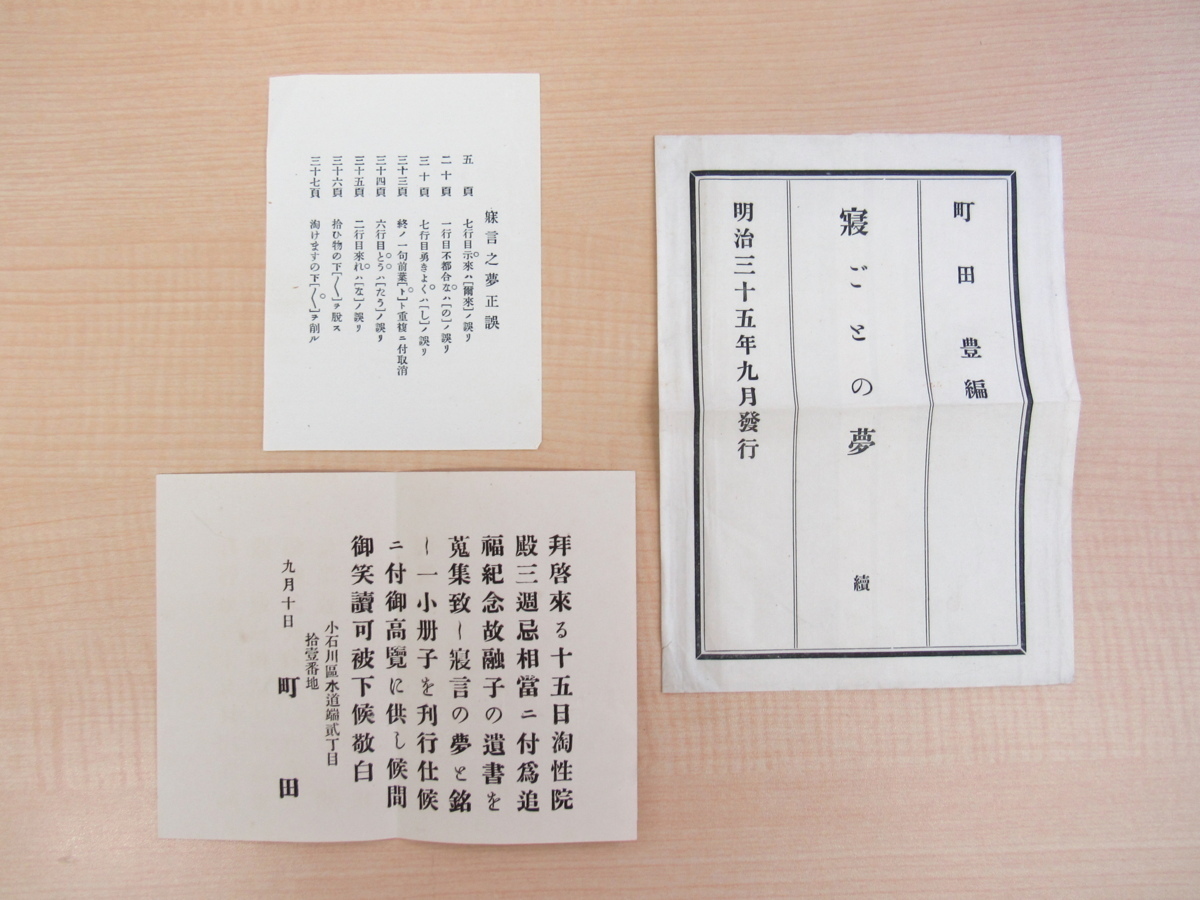 町田豊編
寢ごとの夢 續
明治三十五年九月發行
寐言之夢正誤
五頁 七行目示來ハ「爾來」ノ誤リ
二十頁 一行目不都合なハ「の」ノ誤リ
三十頁 七行目勇きよくハ「し」ノ誤リ
三十三頁 終ノ一句前葉「ト」ト重複ニ付取消
三十四頁 六行目とうハ「たう」ノ誤リ
三十五頁 二行目來れハ「な」ノ誤リ
三十六頁 拾ひ物の下「〱」ヲ脱ス
三十七頁 淘けますの下「〱」ヲ削ル
拜啓來る十五日淘性院
殿三週忌相當ニ付爲追
福紀念故融子の遺書を
蒐集致し寢言の夢と銘
し一小册子を刋行仕候
ニ付御高覽に供し候間
御笑讀可被下候敬白
小石川區水道端貳丁目
拾壹番地
九月十日 町田